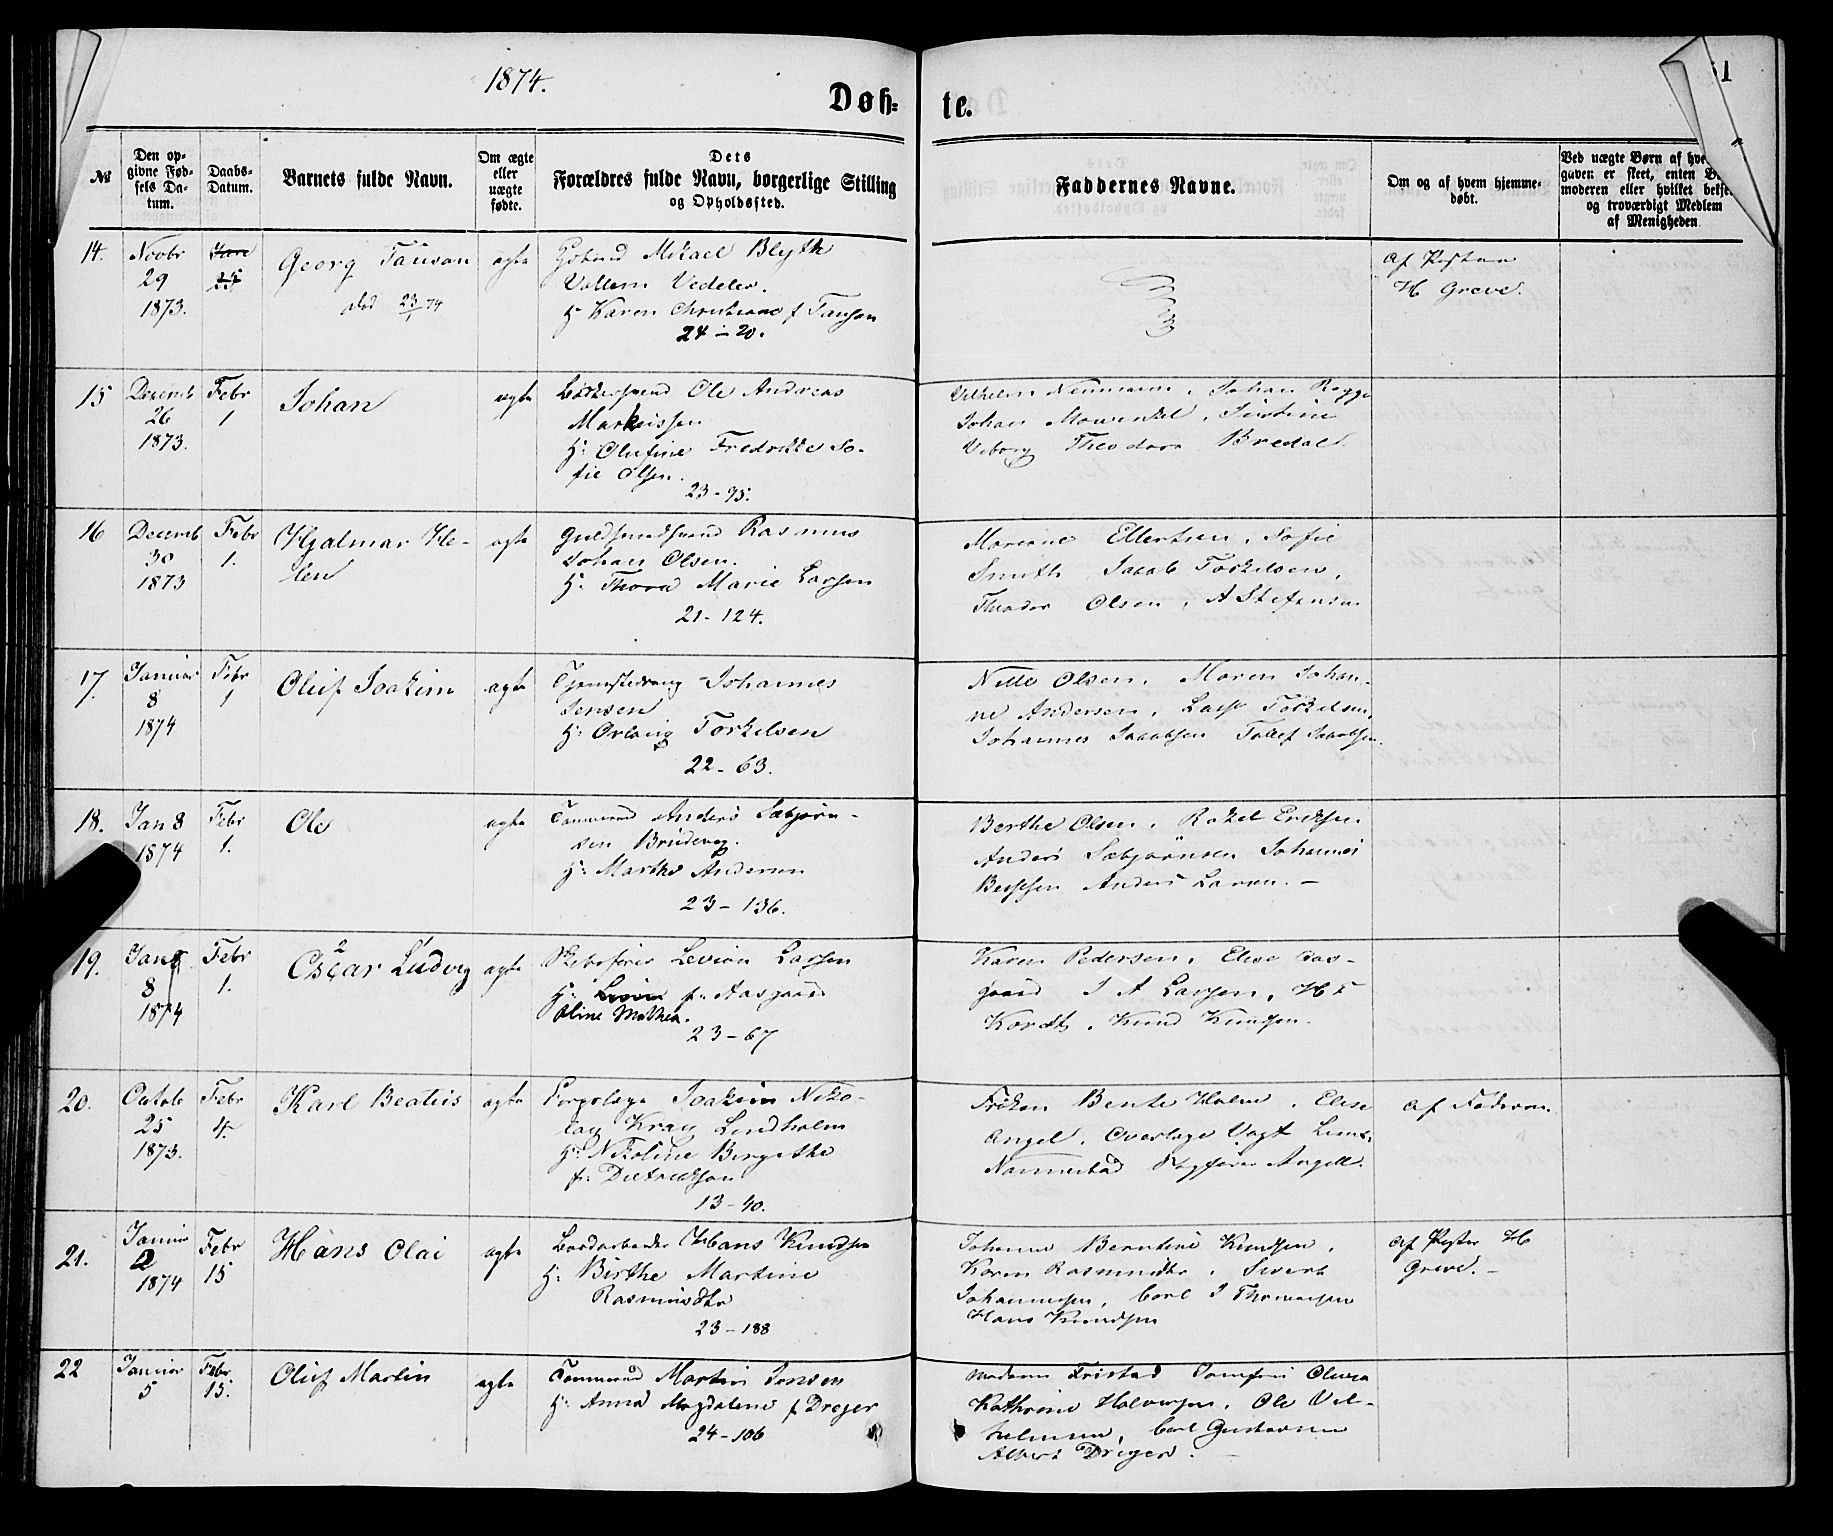 1874.
Døb-
te.
№
Den op-
givne Fød-
sels Da-
tum.
Daabs-
Datum.
Barnets fulde Navn.
Om ægte
eller
uægte
fødte.
Dets
Forældres fulde Navn, borgerlige Stilling
og Opholdssted.
Faddernes Navne.
Om og af hvem hjemme-
døbt.
Ved uægte Børn af
gaven er skeet, enten
moderen eller hvilket
og troværdigt Medlem
af Menigheden
14.
Novbr
29
1873.
Jan
25
Georg Tauson
død 23/1 74
ægte
Mikael Blyth
Vollem Vedeler.
H: Karen Christiane f Tauson
24 - 20.
af Pastor
H Greve.
15
Decemb
26
1873.
Febr
1
Johan
ægte
Ole Andreas
Markussen
H: Olufine Fredrikke So-
fie Olsen.
23 - 95.
Vilhelm Neumann, Johan Rogge
Johan Mowinkel,
Viborg Theodora Bredal
16
Decemb
30
1873
Febr
1.
Hjalmar He-
len
ægte
Guldsmedsvend Rasmus
Johan Olsen.
H: Thora Marie Larsen
21 - 124.
Mariane Ellertsen, Sofie
Smith Jacob Torkelsen,
Theodor Olsen, A Stefansen
17.
Januar
8
1874
Febr
1
Oluf Joakim
ægte
Johannes
Jensen
H: Torkelsen
22 - 63.
Nille Olsen, Maren Johan-
ne Andersen, Lars Torkelsen,
Johannes Jacobsen Tollef Jacobsen.
18.
Jan 8
1874
Febr
1.
Ole
ægte
Tømmermd Anders Sæbjørn-
sen
H: Marthe Andersen
23 - 136.
Berthe Olsen, Rakel Eriksen
Anders Sæbjørnsen Johannes
Anders Larsen. -
19.
Jan
8
1874
Febr
1.
2
Oscar Ludvig
ægte
Skibsfører Larsen
H: f: Aasgaard
Oline Mathea.
23 - 67
Karen Pedersen, Elise Aas-
gaard J A Larsen, H F
Kordt, Knud Knudsen.
20.
Octob
25
1873.
Febr
4.
Karl Beatus
ægte
Joakim Niko-
lay Kray Lindholm
H: Nikoline Birgithe
f: Dietrichson
13 - 40.
Frøken Bente Holm, Elise
Angel, Overlæge Vogt
Nannestad Angell.
af Faderen.
21.
Januar
2
1874
Febr
15
Hans Olai
ægte
Hans Knudsen
H: Birthe Martine
Rasmusdtr
23 - 188
Johanne Berntine Knudsen,
Karen Rasmusdtr, Sivert
Johannesen, Carl J Thomassen
Hans Knudsen
af Pastor H
Greve. -
22
Januar
5
Febr
15.
Oluf Martin
ægte
Tømmermd Martin Jensen
H: Anna Magdalene f Dreyer
24 - 106
Madame Fristad Jomfru Olivia
Kathrine Halvorsen, Ole Vil-
helmsen, Carl Gustavsen
Albert Dreyer. -